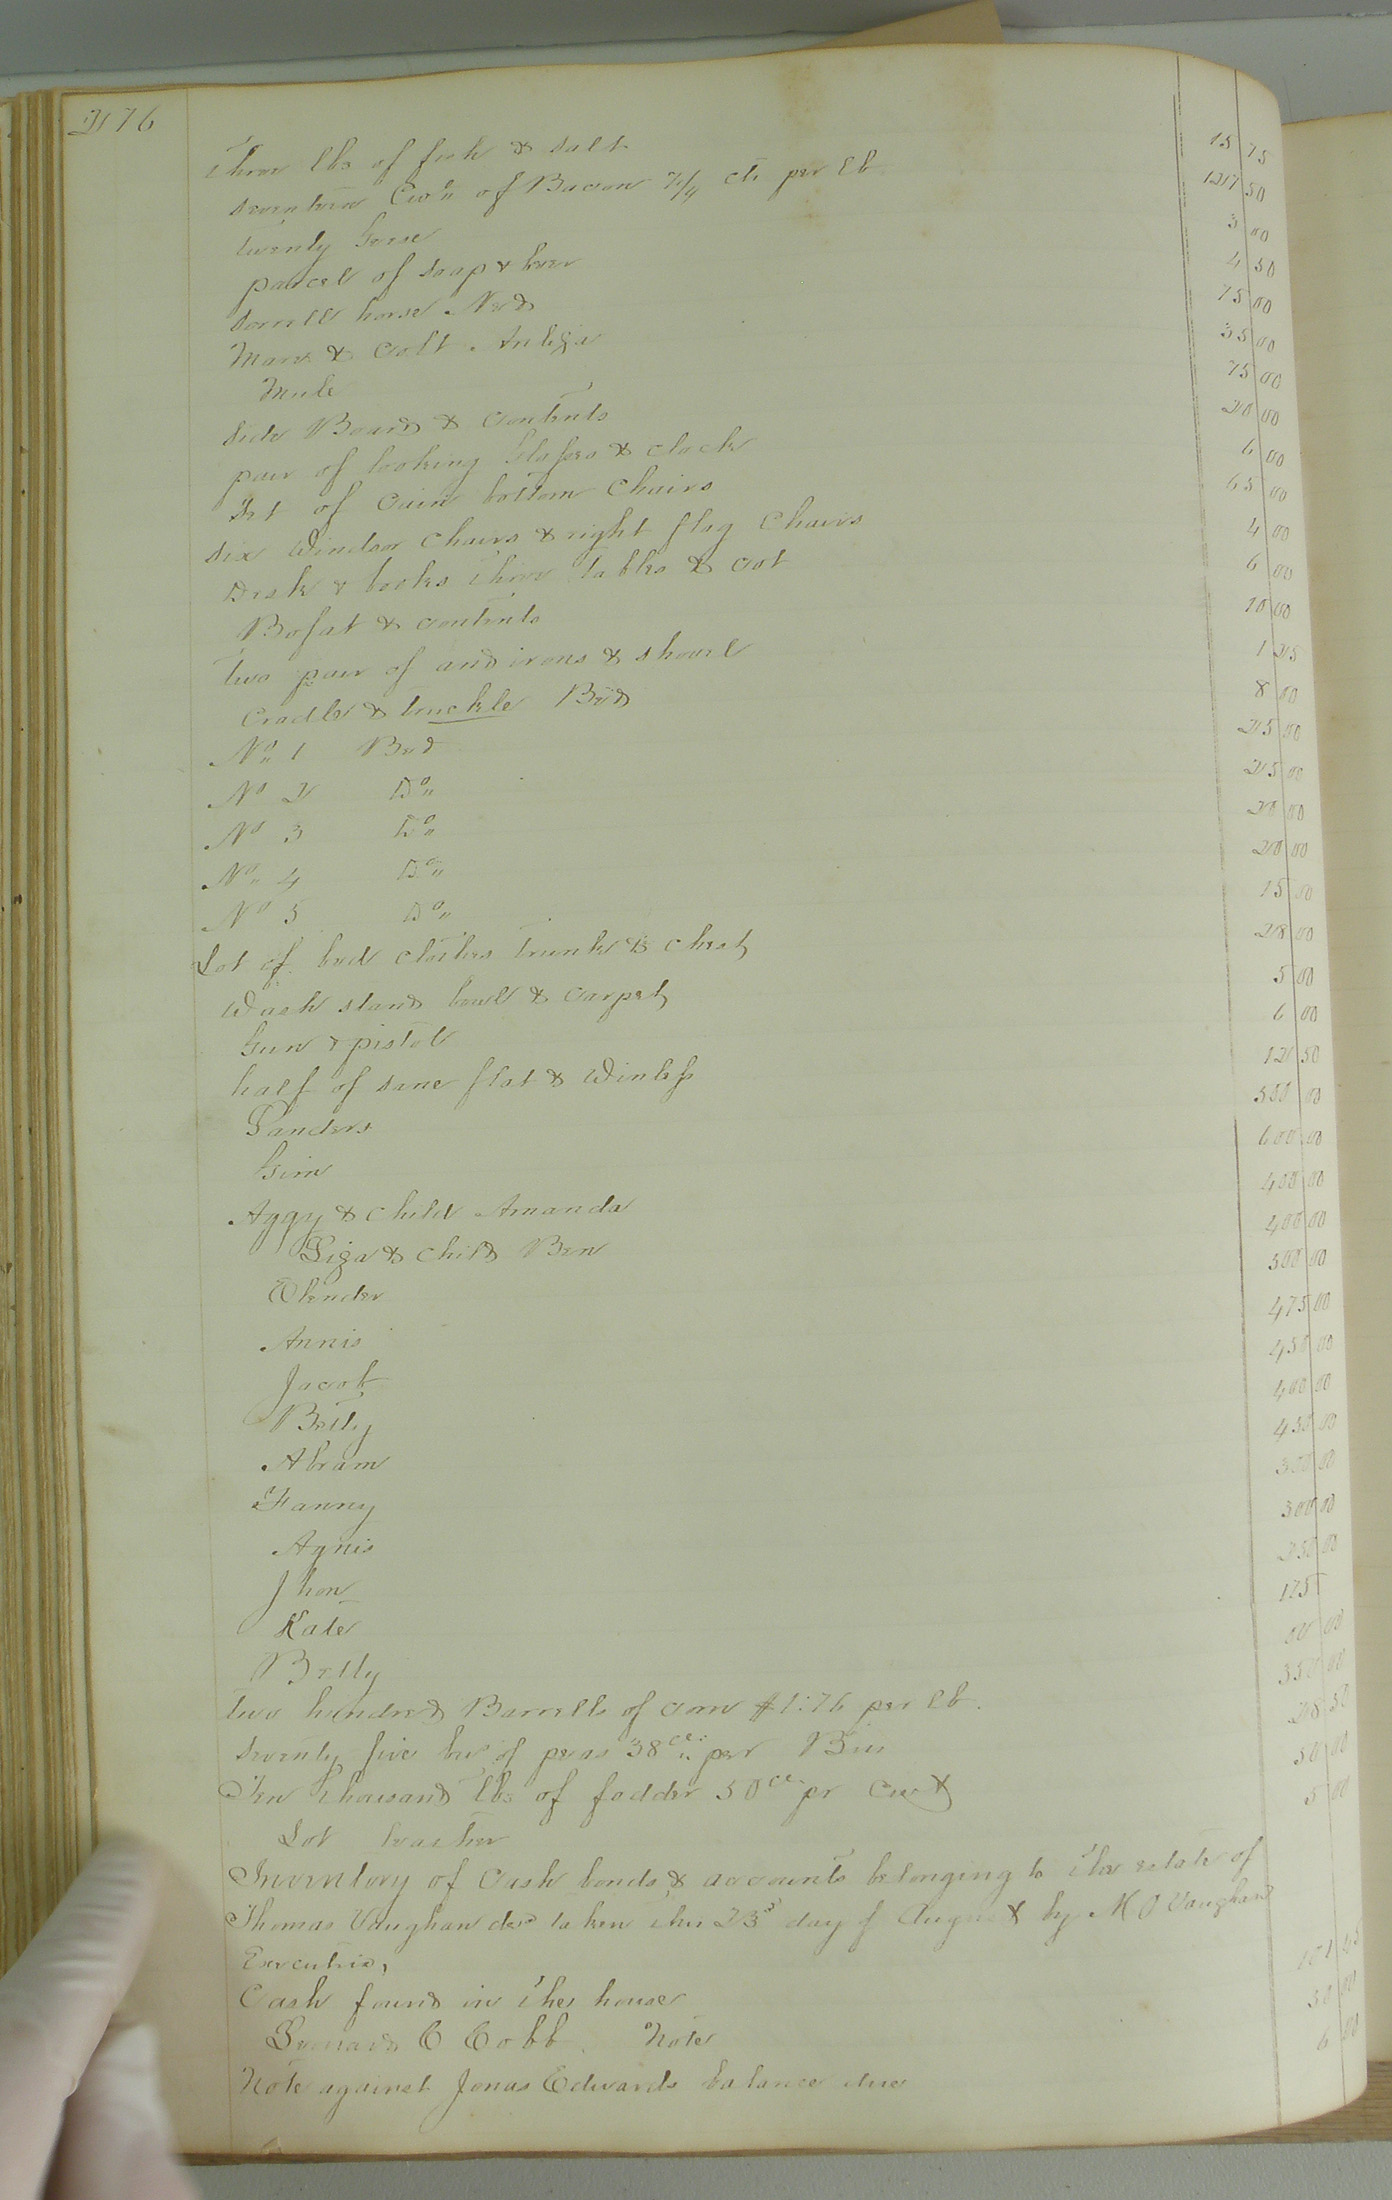 276
Three lbs of fish & salt 15 75
Seventeen Cwo of Bacon 7 1/4 cts per lb 127 50
twenty Geese 3 00
parcel of soap & 4 50
Sorrell horse Ned 75 00
Mare & Colt Antiga 35 00
Mule 75 00
Side Board & Contents 20 00
pair of looking Glasses & clock 6 00
Set of Cain bottom Chairs 65 00
Six Windsor Chairs & eight flag Chairs 4 00
Desk & books three tables & cot 6 00
Bofat & contents 10 00
two pair of andirons & shovel 1 25
Cradle & truckle Bed 8 00
No 1 Bed 25 00
No 2 Do 25 00
No 3 Do 20 00
No 4 Do 20 00
No 5 Do 15 00
Lot of bed clothes trunk & chest 28 00
Wash stand bowl & carpet 5 00
Gun & pistol 6 00
half of flat & 12 50
Sanders 550 00
Gim 600 00
Aggy & child Amanda 400 00
& child Ben 400 00
500 00
Annis 475 00
Jacob 450 00
400 00
Abram 450 00
Fanny 300 00
Agnis 300 00
Jhon 250 00
Kate 175
Betty 00 00
two hundred Barrells of corn $1:76 per lb. 350 00
Seventy five bu of peas 38 cts per Bus 28 50
Ten thousand lbs of fodder 50 cts pr Cwt 50 00
Lot leather 5 00
Inventory of Cash bonds & accounts belonging to the estate of
Thomas Vaughan decd taken this 23d day of August by M O Vaughan
Executrix,
Cash found in the house 101 45
C Cobb Note 50 00
Note against Jonas Edwards balance due 6 00